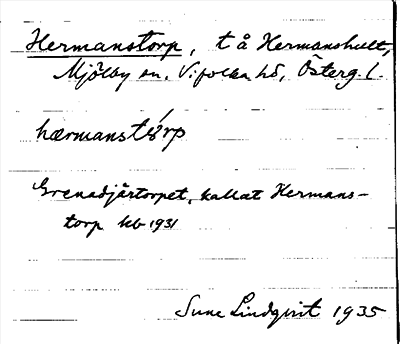 Hermanstorp, t å Hermanshult,
Mjölby sn, Vifolka hd, Österg. l.
hærmanstó̤rp
Grenadjärtorpet, kallat Hermans-
torp kb 1931
Sune Lindqvist 1935